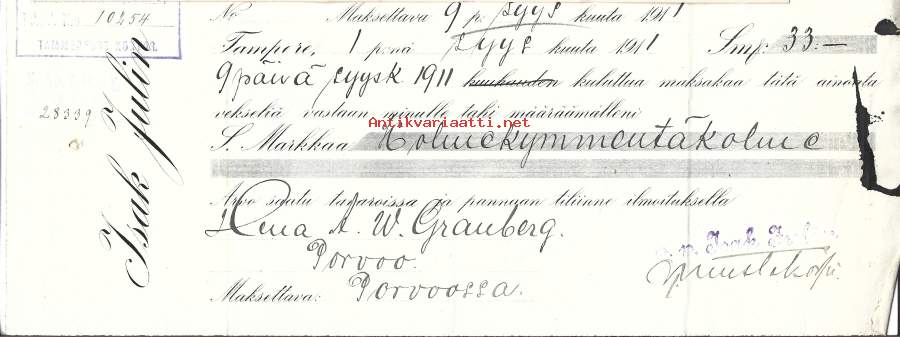 No Maksettava 9 p. syys kuuta 1911
10254
Tampere, 1 p:nä syys kuuta 1911 Smf: 33:—
TAMMERFORS
9 päivä syysk 1911 kuukauden kuluttua maksakaa tätä ainoata
vekseliä vastaan minulle tahi määräämälleni
28339
Antikvariaatti.net
S. Markkaa Kolmekymmentäkolme
Isak Julin
Arvo saatu tavaroissa ja pannaan tiliinne ilmoituksella
Herra A. W. Granberg.
Porvoo.
p.p. Isak Julin
Maksettava: Porvoossa.